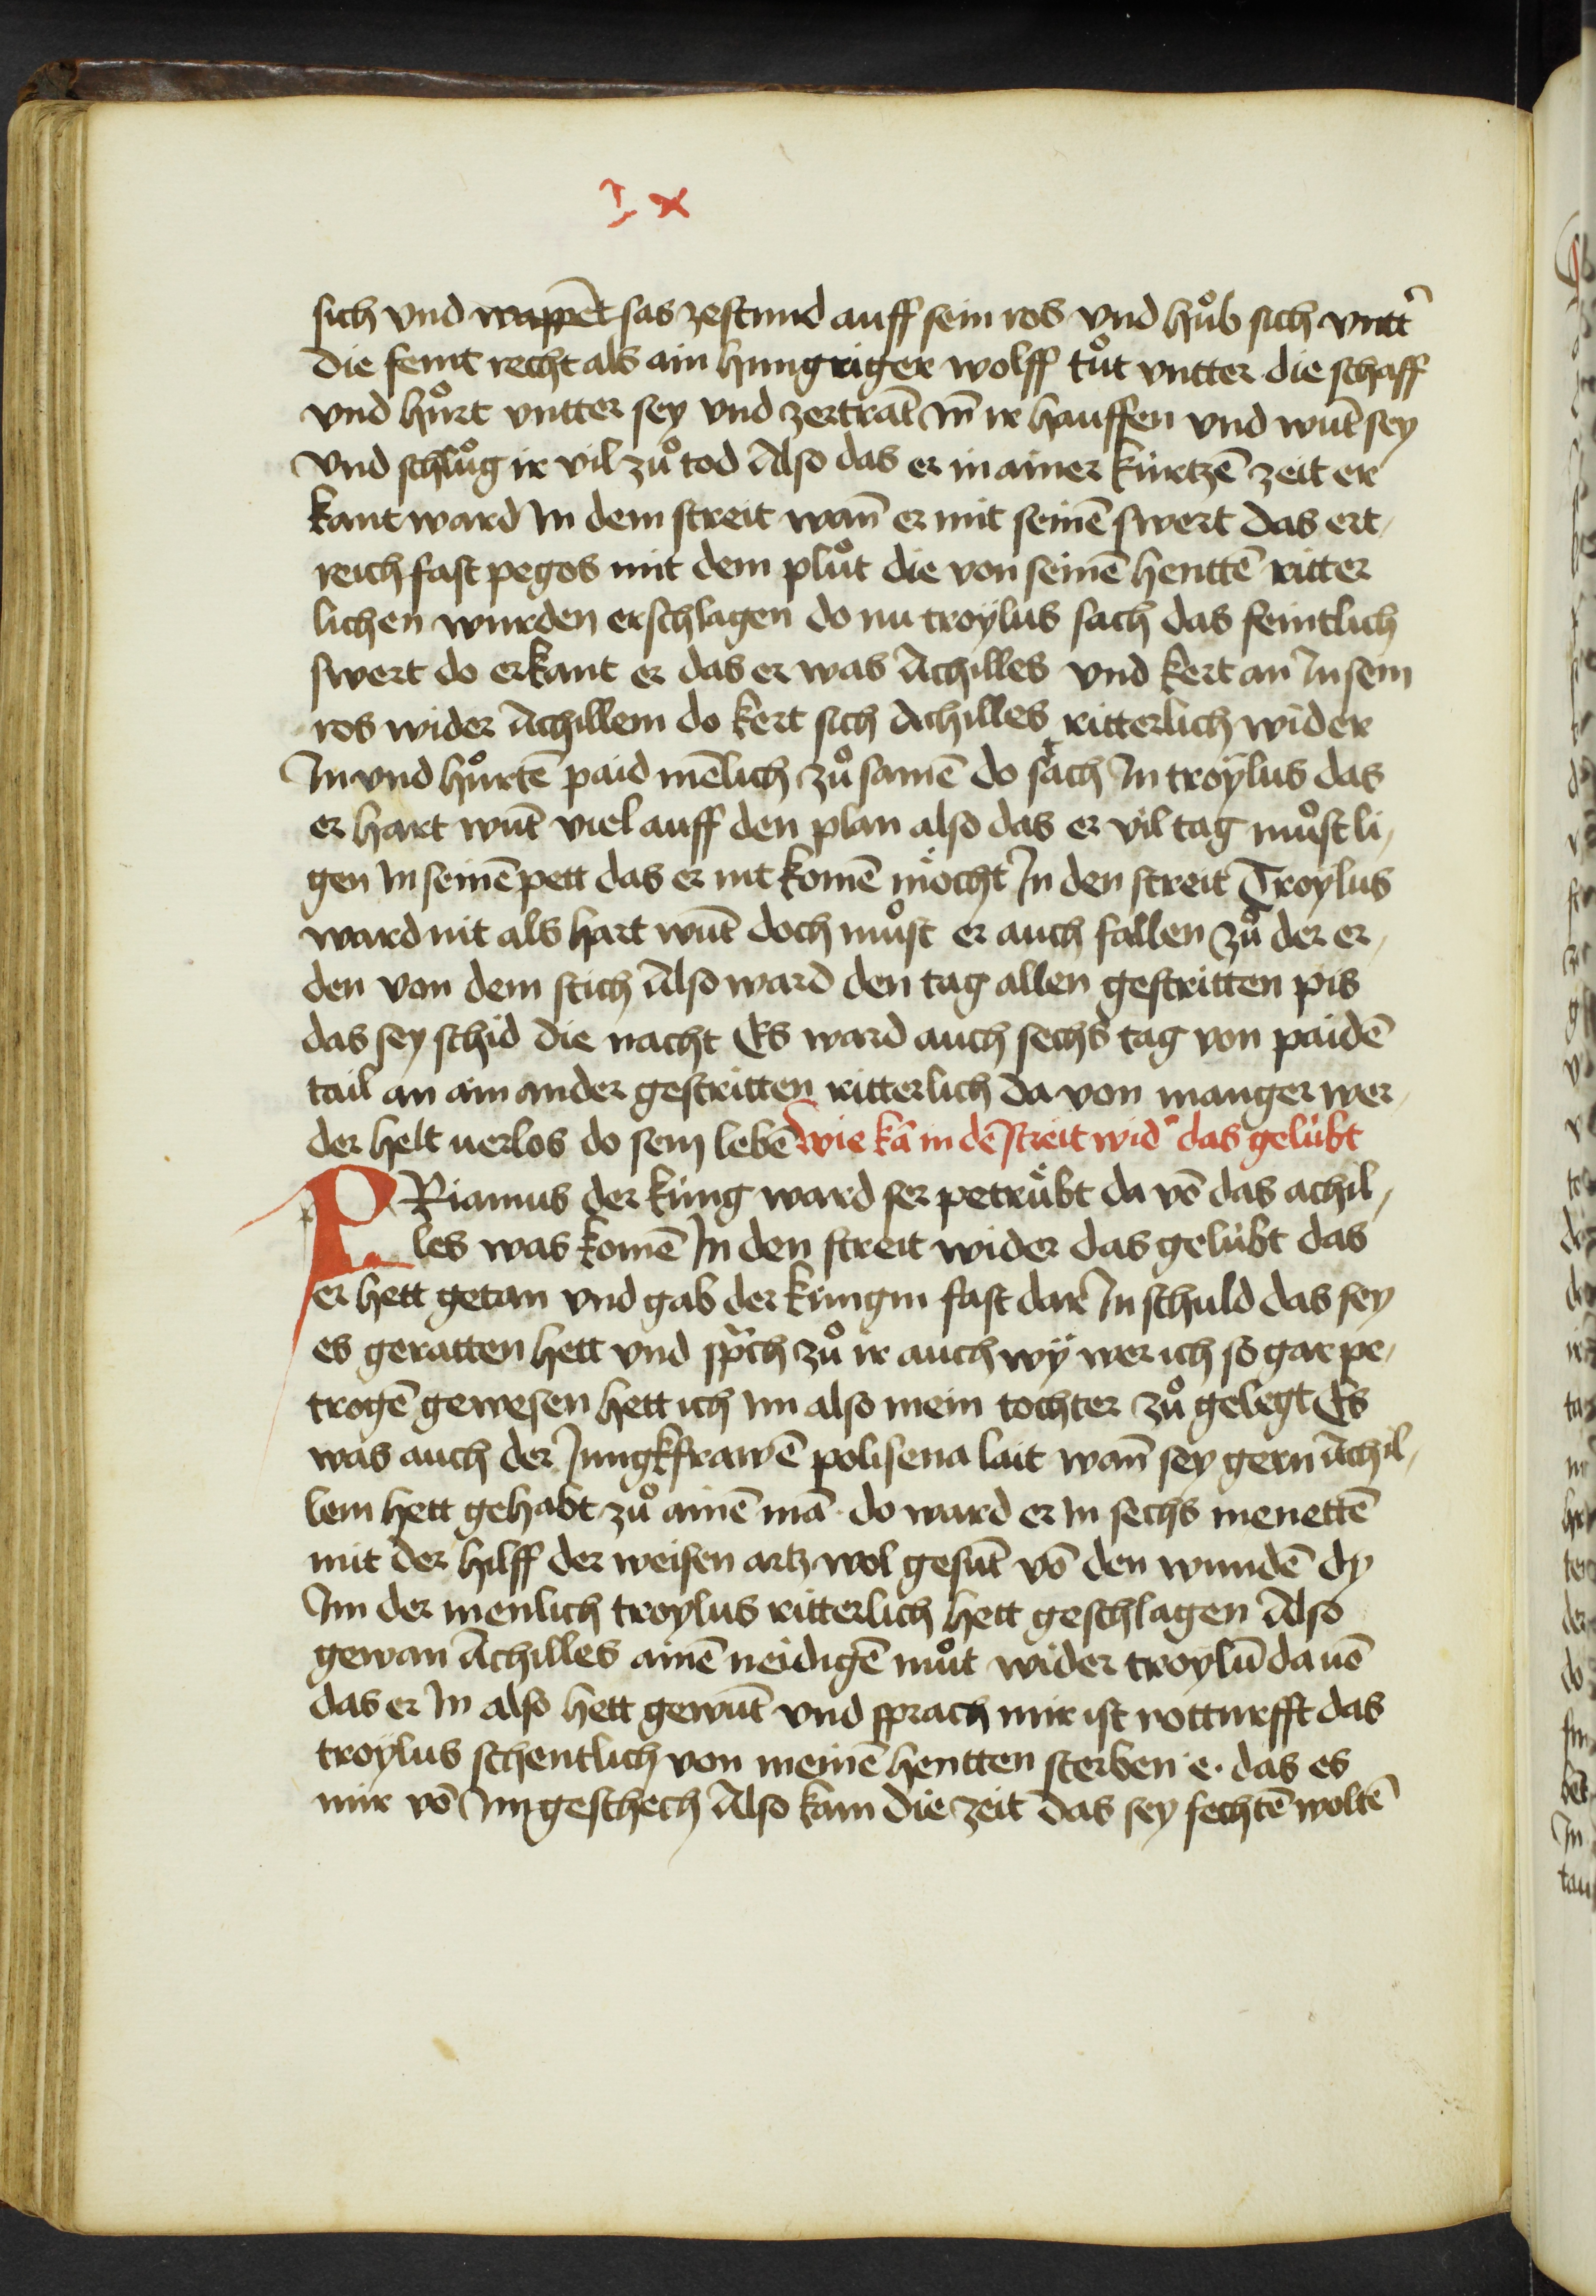 I x
sich vnd wappēt sas zestund auff sein ros vnd hůb sich vntt̄
die feint recht als ain hungriger wolff tůt vntter die schaff
vnd hůrt vntter sey vnd zertrāt in̄ ir hauffen vnd wūt sey
vnd schlůg ir vil zů tod Also das er in ainer kurtzē zeit er
kant ward In dem streit wan̄ er mit seinē swert das ert-
reich fast pegos mit dem plůt die von seinē henttē ritter
lichen wurden erschlagen do nu troÿlus sach das feintlich
swert do erkant er das er was Achilles vnd kert an In sein
ros wider Achillem do kert sich Achilles ritterlich wider
In vnd hůrtē paid mēlich zů samē do stach In troÿlus das
er hart wūt viel auff den plan also das er vil tag můst li-
gen In seinē pett das er nit komē möcht In den streit Troÿlus
ward nit als hart wūt doch můst er auch fallen zů der er-
den von dem stich Also ward den tag allen gestritten pis
das sey schid die nacht Es ward auch sechs tag von paidē
tail an ain ander gestritten ritterlich da von manger wer-
der helt uerlos do sein lebē wie kā in dē streit wid̄ das gelübt
PRiamus der küng ward ser petrübt da vō das achil-
les was komē In den streit wider das gelübt das
er hett getan vnd gab der küngin fast dar In schuld das sey
es geratten hett vnd sp̄ch zů ir auch wÿ wer ich so gar pe-
trogē gewesen hett ich im also mein tochter zů gelegt Es
was auch der Jungkfrawē polisena lait wan̄ sey gern Achil-
lem hett gehabt zů ainē mā do ward er in sechs menettē
mit der hilff der weisen artz wol gesūt vō den wundē dy
Im der menlich troylus ritterlich hett geschlagen Also
gewan Achilles ainē neidigē můt wider troylū da uō
das er In also hett gewūt vnd sprach mir ist notturfft das
troÿlus schentlich von meinē hentten sterben e. das es
mir vō Im geschech Also kam die zeit das sey fechtē woltē